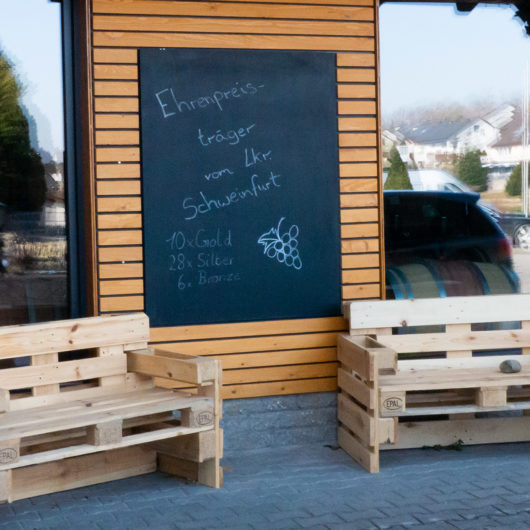 Ehrenpreis-
träger
vom Lkr.
Schweinfurt
10x Gold
28x Silber
6x Bronze
EPAL
EPAL
EPAL